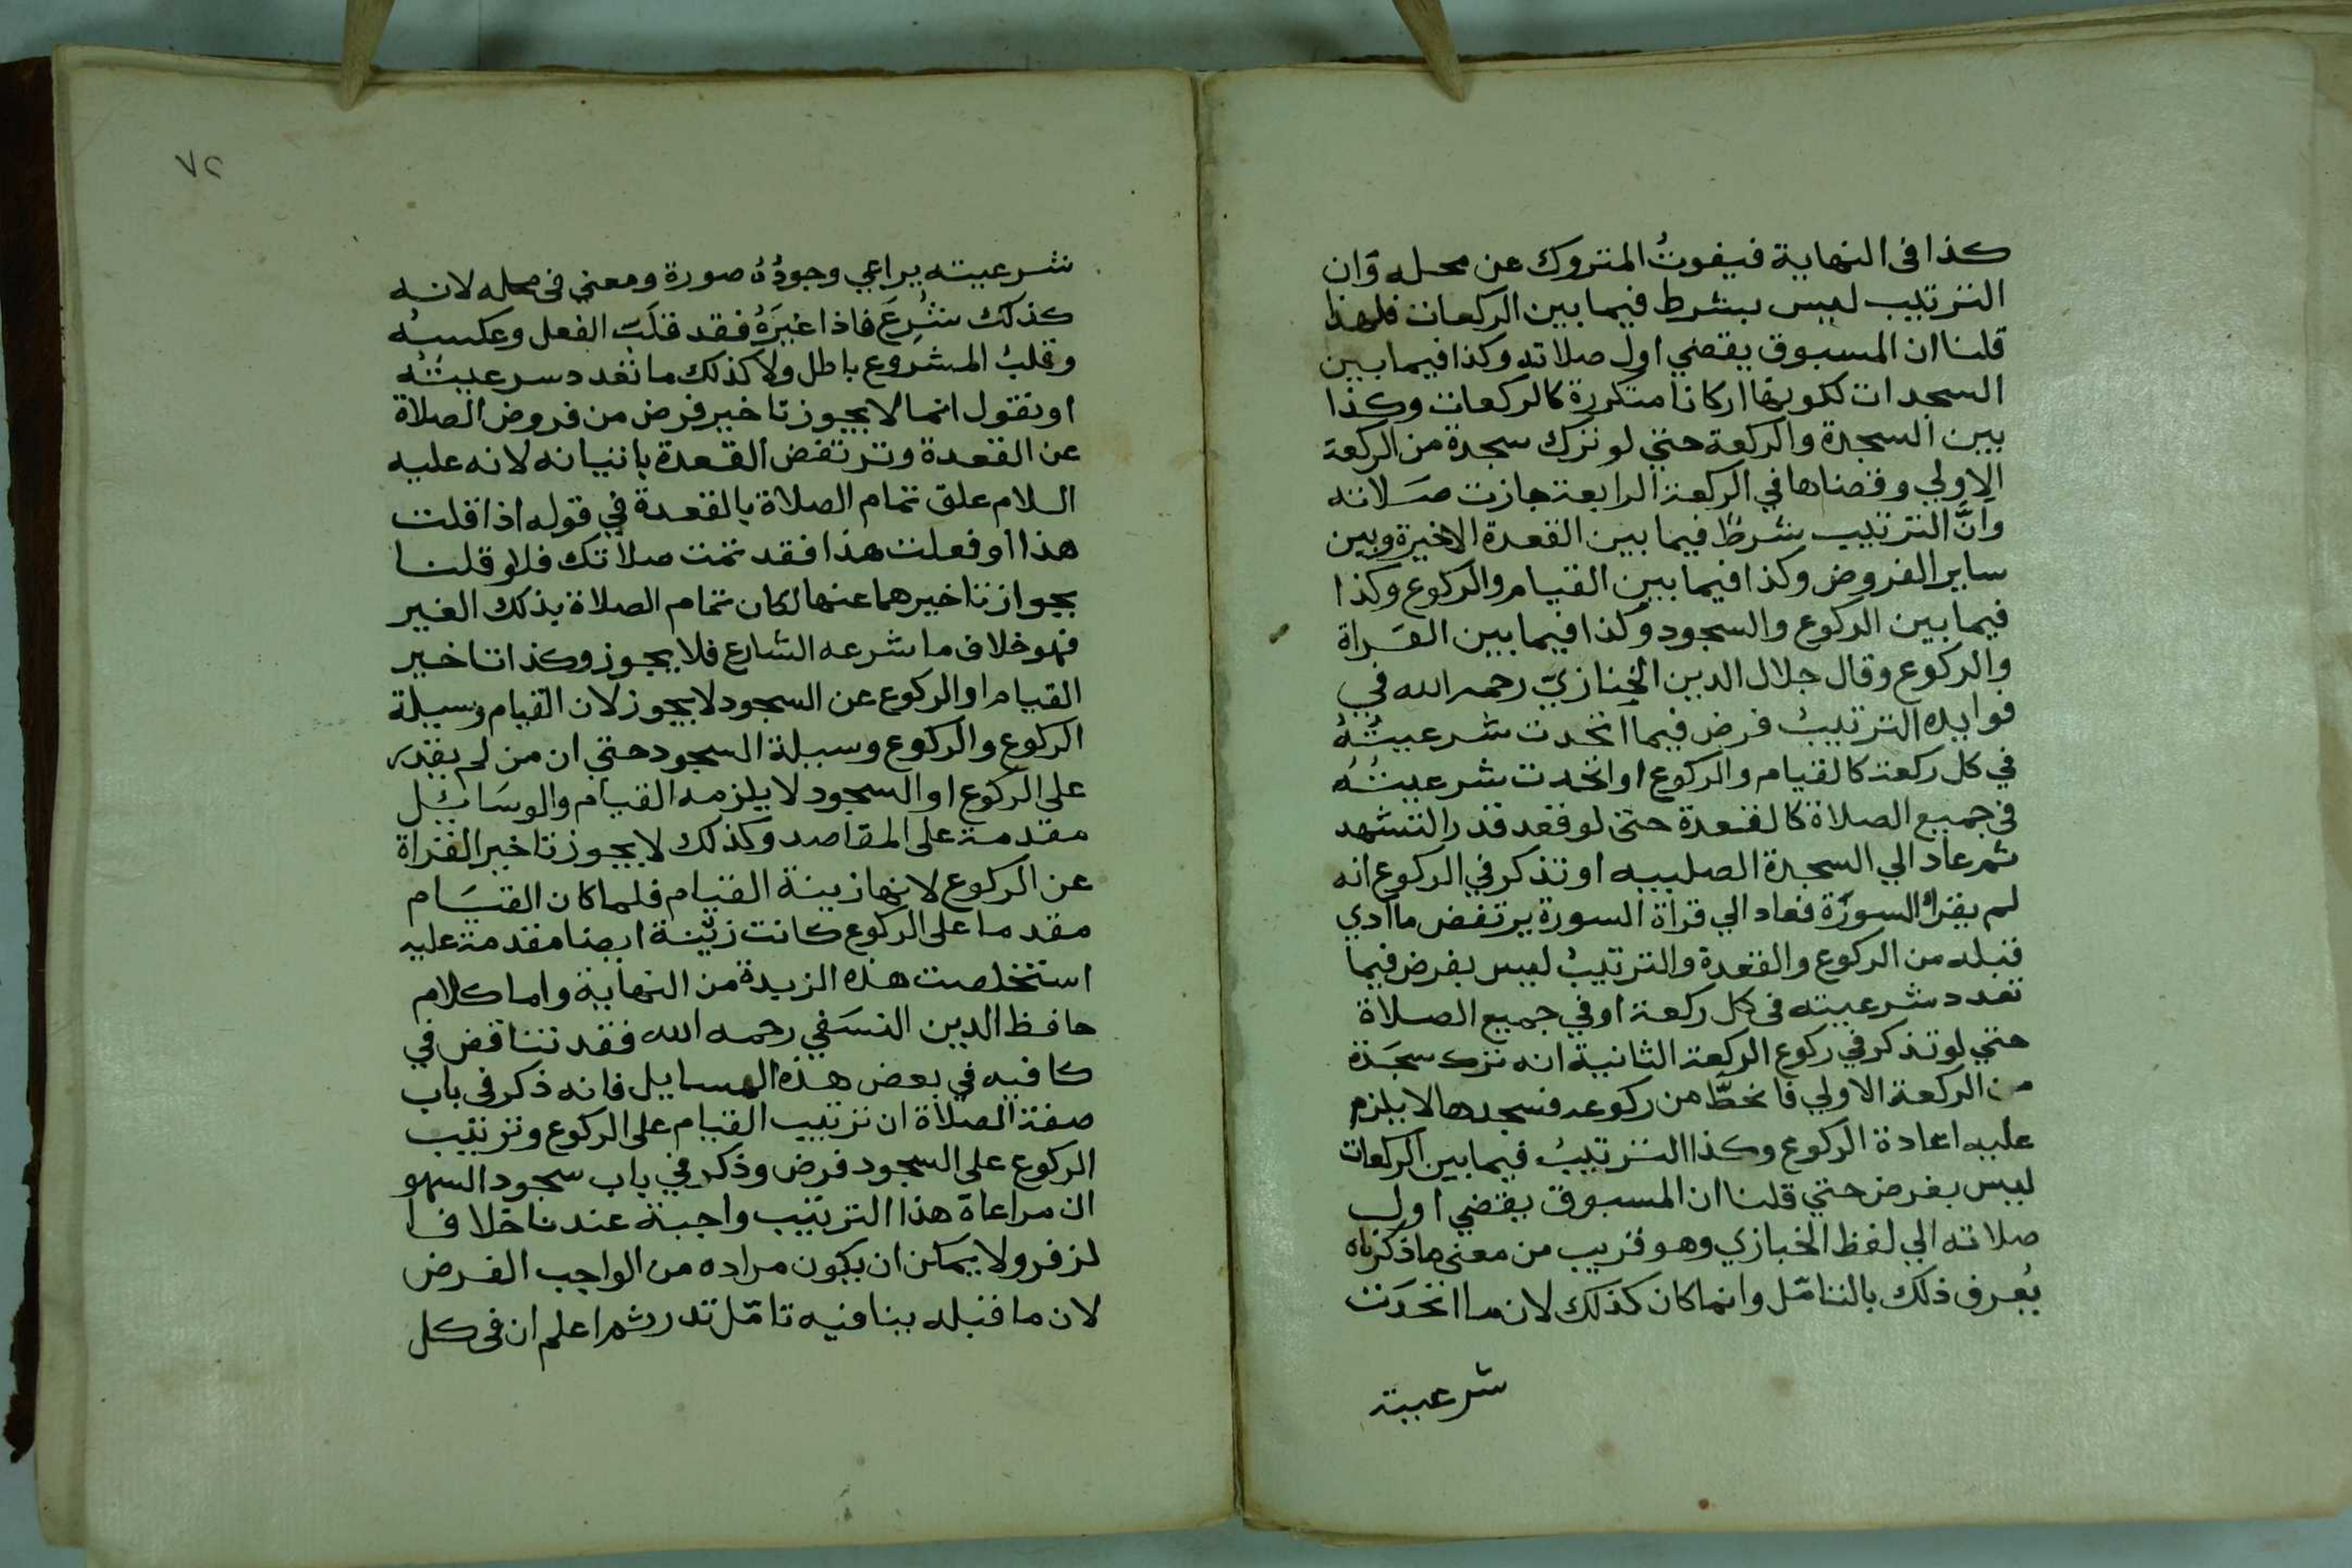 كذا فى النهاية فيفوتُ المتروك عن محله وَان
الترتيب ليس بشرط فيما بين الركعات فلهذا
قلنا ان المسبوق يقضي اول صلاته وكذا فيما بين
السجدات لكونها اركانا متكررة كالركعات وكذا
بين السجدة والركعة حتي لو ترك سجدة من الركعة
الاولي وقضاها في الركعة الرابعة جازت صَلاته
وانَّ الترتيب شرطٌ فيما بين القعدة الاخيرة وبين
ساير الفروض وكذا فيما بين القيام والركوع وكذا
فيما بين الركوع والسجود وكذا فيما بين القراة
والركوع وقال جلال الدين الخبازيّ رحمه الله في
فوايده الترتيبُ فرض فيما اتحدت شرعيتُهُ
في كل ركعة كالقيام والركوع او اتحدت شرعيتُهُ
فى جميع الصلاة كالقعدة حتى لو قعد قدر التشهد
ثم عاد الي السجدة الصلبيه او تذكر في الركوع انه
لم يقراْ السورَة فعاد الي قراة السورة يرتفض ما ادي
قبله من الركوع والقعدة والترتيبُ ليس بفرض فيما
تعدد شرعيته فى كل ركعة او في جميع الصلاة
حتي لو تذكر في ركوع الركعة الثانية انه ترك سجَدة
من الركعة الاولي فانحطَّ من ركوعه فسجدها لا يلزم
عليه اعادة الركوع وكذا الترتيبُ فيما بين الركعات
ليس بفرض حتي قلنا ان المسبوق يقضي اول
صلاته الي لفظ الخبازي وهو قريب من معنى ما ذكرناه
يُعرف ذلك بالتامّل وانما كان كذلك لان ما اتحدَت
شرعيته
٧٢
شرعيته يراعي وجودُهُ صورة ومعني فى محله لانه
كذلك شُرِعَ فاذا غيرَهُ فقد قلَبَ الفعل وعكسهُ
وقلبُ المشروع باطل ولا كذلك ما تعدد سرعيتُه
او نقول انما لا يجوز تاخير فرض من فروض الصلاة
عن القعدة وترتفض القعدة باتيانه لانه عليه
السلام علق تمام الصلاة بالقعدة في قوله اذا قلت
هذا او فعلت هذا فقد تمت صلاتك فلو قلنا
بجواز تاخيرهما عنها لكان تمام الصلاة بذلك الغير
فهو خلاف ما شرعه الشارع فلا يجوز وكذا تاخير
القيام او الركوع عن السجود لا يجوز لان القيام وسيلة
الركوع والركوع وسيلة السجود حتي ان من لم يقدر
على الركوع او السجود لا يلزمه القيام والوسَائل
مقدمة على المقاصد وكذلك لا يجوز تاخير القراة
عن الركوع لانها زينة القيام فلما كان القيَام
مقدما على الركوع كانت زينة ايضا مقدمة عليه
استخلصت هذه الزبدة من النهاية واما كلام
حافظ الدين النسَفي رحمه الله فقد تناقض في
كافيه في بعض هذه المسايل فانه ذكر فى باب
صفة الصلاة ان ترتيب القيام على الركوع وترتيب
الركوع على السجود فرض وذكر في باب سجود السهو
ان مراعاة هذا الترتيب واجبة عندنا خلافا
لزفر ولا يمكن ان يكون مراده من الواجب الفرض
لان ما قبله ينافيه تامّل تدر ثم اعلم ان فى كل